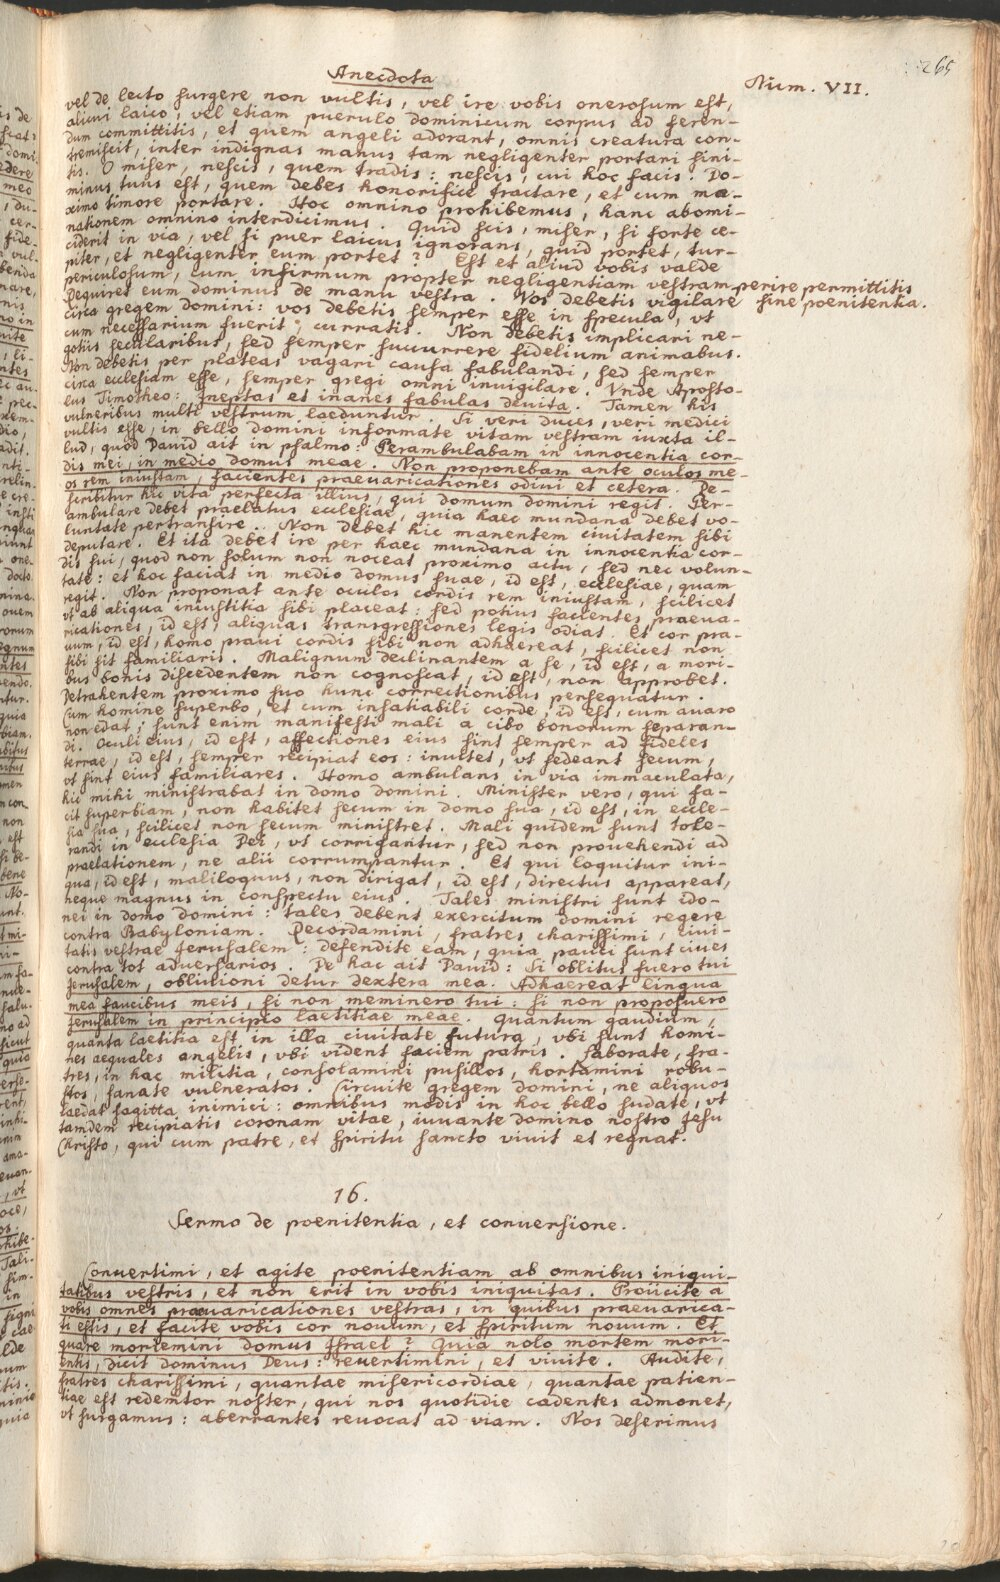 265
Anecdota
Num. VII.
vel de lecto surgere non vultis, vel ire vobis onerosum est,
alicui laico, vel etiam puerulo dominicum corpus ad feren-
dum committitis, et quem angeli adorant, omnis creatura con-
tremiscit, inter indignas manus tam negligenter portari sini-
tis. O miser, nescis, quem tradis: nescis, cui hoc facis. Do-
minus tuus est, quem debes honorifice tractare, et cum ma-
ximo timore portare. Hoc omnino prohibemus, hanc abomi-
nationem omnino interdicimus. Quid scis, miser, si forte ce-
ciderit in via, vel si puer laicus ignorans, quid portet, tur-
piter, et negligenter eum portet? Est et aliud vobis valde
periculosum, cum infirmum propter negligentiam vestram perire permittitis
sine poenitentia.
Requiret eum dominus de manu vestra. Vos debetis vigilare
circa gregem domini: vos debetis semper esse in specula, vt
cum necessarium fuerit, curratis. Non debetis implicari ne-
gotiis secularibus, sed semper succurrere fidelium animabus.
Non debetis per plateas vagari causa fabulandi, sed semper
circa ecclesiam esse, semper gregi omni inuigilare. Vnde Aposto-
lus Timotheo: Ineptas et inanes fabulas deuita. Tamen his
vulneribus multi vestrum laeduntur. Si veri duces, veri medici
vultis esse, in bello domini informate vitam vestram iuxta il-
lud, quod Dauid ait in psalmo: Perambulabam in innocentia cor-
dis mei, in medio domus meae. Non proponebam ante oculos me-
os rem iniustam, facientes praeuaricationes odiui et cetera. De-
scribitur hic vita perfecta illius, qui domum domini regit. Per-
ambulare debet praelatus ecclesiae, quia haec mundana debet vo-
luntate pertransire. Non debet hic manentem ciuitatem sibi
deputare. Et ita debet ire per haec mundana in innocentia cor-
dis sui, quod non solum non noceat proximo actu, sed nec volun-
tate: et hoc faciat in medio domus suae, id est, ecclesiae, quam
regit. Non proponat ante oculos cordis rem iniustam, scilicet
vt ab aliqua iniustitia sibi placeat: sed potius facientes praeua-
ricationes, id est, aliquas transgressiones legis odiat. Et cor pra-
uum, id est, homo praui cordis sibi non adhaereat, scilicet non
sibi sit familiaris. Malignum declinantem a se, id est, a mori-
bus bonis discedentem non cognoscat, id est, non approbet.
Detrahentem proximo suo hunc correctionibus persequatur.
Cum homine superbo, et cum insatiabili corde, id est, cum auaro
non edat; sunt enim manifesti mali a cibo bonorum separan-
di. Oculi eius, id est, affectiones eius sint semper ad fideles
terrae, id est, semper recipiat eos: inuitet, vt sedeant secum,
vt sint eius familiares. Homo ambulans in via immaculata,
hic mihi ministrabat in domo domini. Minister vero, qui fa-
cit superbiam, non habitet secum in domo sua, id est, in eccle-
sia sua, scilicet non secum ministret. Mali quidem sunt tole-
randi in ecclesia Dei, vt corrigantur, sed non prouehendi ad
praelationem, ne alii corrumpantur. Et qui loquitur ini-
qua, id est, maliloquus, non dirigat, id est, directus appareat,
neque magnus in conspectu eius. Tales ministri sunt ido-
nei in domo domini: tales debent exercitum domini regere
contra Babyloniam. Recordamini, fratres charissimi, ciui-
tatis vestrae Jerusalem: defendite eam, quia pauci sunt ciues
contra tot aduersarios. De hac ait Dauid: Si oblitus fuero tui
Jerusalem, obliuioni detur dextera mea. Adhaereat lingua
mea faucibus meis, si non meminero tui: si non proposuero
Jerusalem in principio laetitiae meae. Quantum gaudium,
quanta laetitia est in illa ciuitate futura, vbi sunt homi-
nes aequales angelis, vbi vident faciem patris. Laborate, fra-
tres, in hac militia, consolamini pusillos, hortamini robu-
stos, sanate vulneratos. Circuite gregem domini, ne aliquos
laedat sagitta inimici: omnibus modis in hoc bello sudate, vt
tandem recipiatis coronam vitae, iuuante domino nostro Jesu
Christo, qui cum patre, et spiritu sancto viuit et regnat.
16.
Sermo de poenitentia, et conuersione.
Conuertimi, et agite poenitentiam ab omnibus iniqui-
tatibus vestris, et non erit in vobis iniquitas. Proiicite a
vobis omnes praeuaricationes vestras, in quibus praeuarica-
ti estis, et facite vobis cor nouum, et spiritum nouum. Et
quare moriemini domus Israel? Quia nolo mortem mori-
entis, dicit dominus Deus: reuertimini, et viuite. Audite,
fratres charissimi, quantae misericordiae, quantae patien-
tiae est redemtor noster, qui nos quotidie cadentes admonet,
vt surgamus: aberrantes reuocat ad viam. Nos deserimus